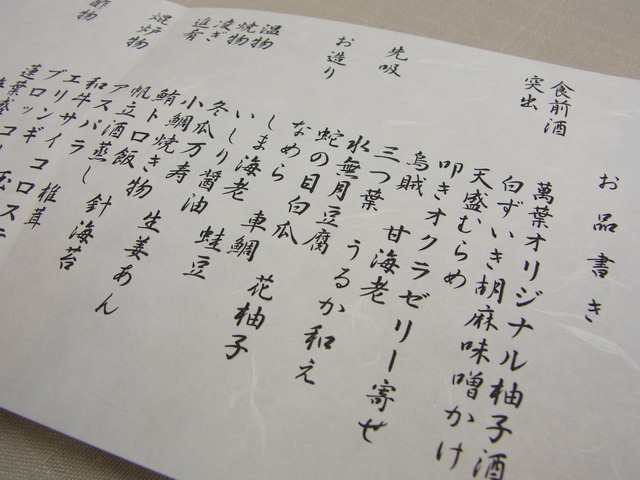 お品書き
食前酒
萬葉オリジナル柚子酒
突出
白ずいき胡麻味噌かけ
天盛むらめ
叩きオクラゼリー寄せ
烏賊
甘海老
先吸
三つ葉
水無月豆腐
うるか和え
お造り
蛇の目白瓜
なめら
車鯛
花柚子
しま海老
いしり醤油
蛙豆
温物
冬瓜万寿
生姜あん
焼物
小鯛焼き物
凌ぎ
鮪トロ飯
針海苔
追肴
帆立酒蒸し
アスパラ
焜炉物
和牛サイコロ
椎茸
エリンギ
ブロッコリー
酢物